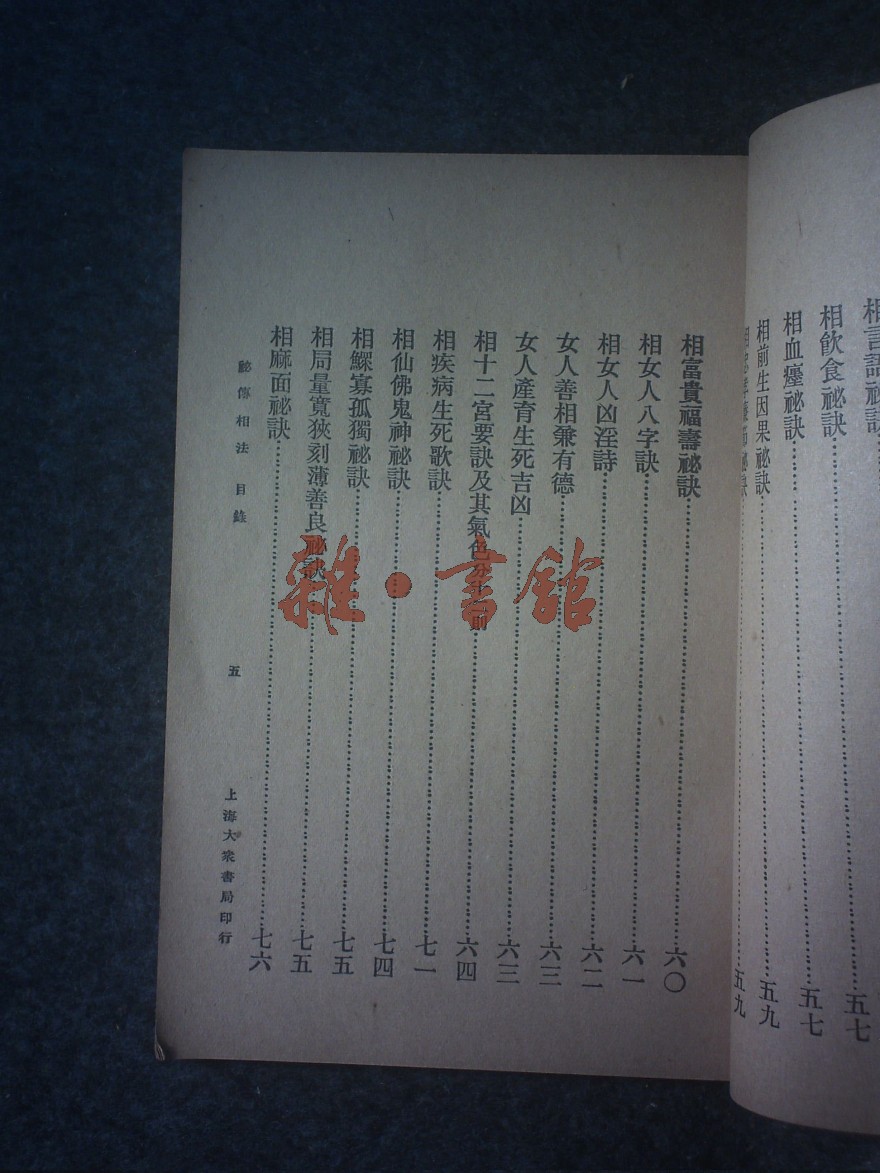 相飲食祕訣……五七
相血痣祕訣……五七
相前生因果祕訣……五九
五九
相富貴福壽祕訣……六〇
相女人八字訣……六一
相女人凶淫詩……六二
女人善相兼有德……六三
女人產育生死吉凶……六三
相十二宮要訣及其氣色分十二則……六四
相疾病生死歌訣……七一
相仙佛鬼神祕訣……七四
相鰥寡孤獨祕訣……七五
相局量寬狹刻薄善良祕訣……七五
相麻面祕訣……七六
祕傳相法 目錄 五 上海大衆書局印行
雜·書館